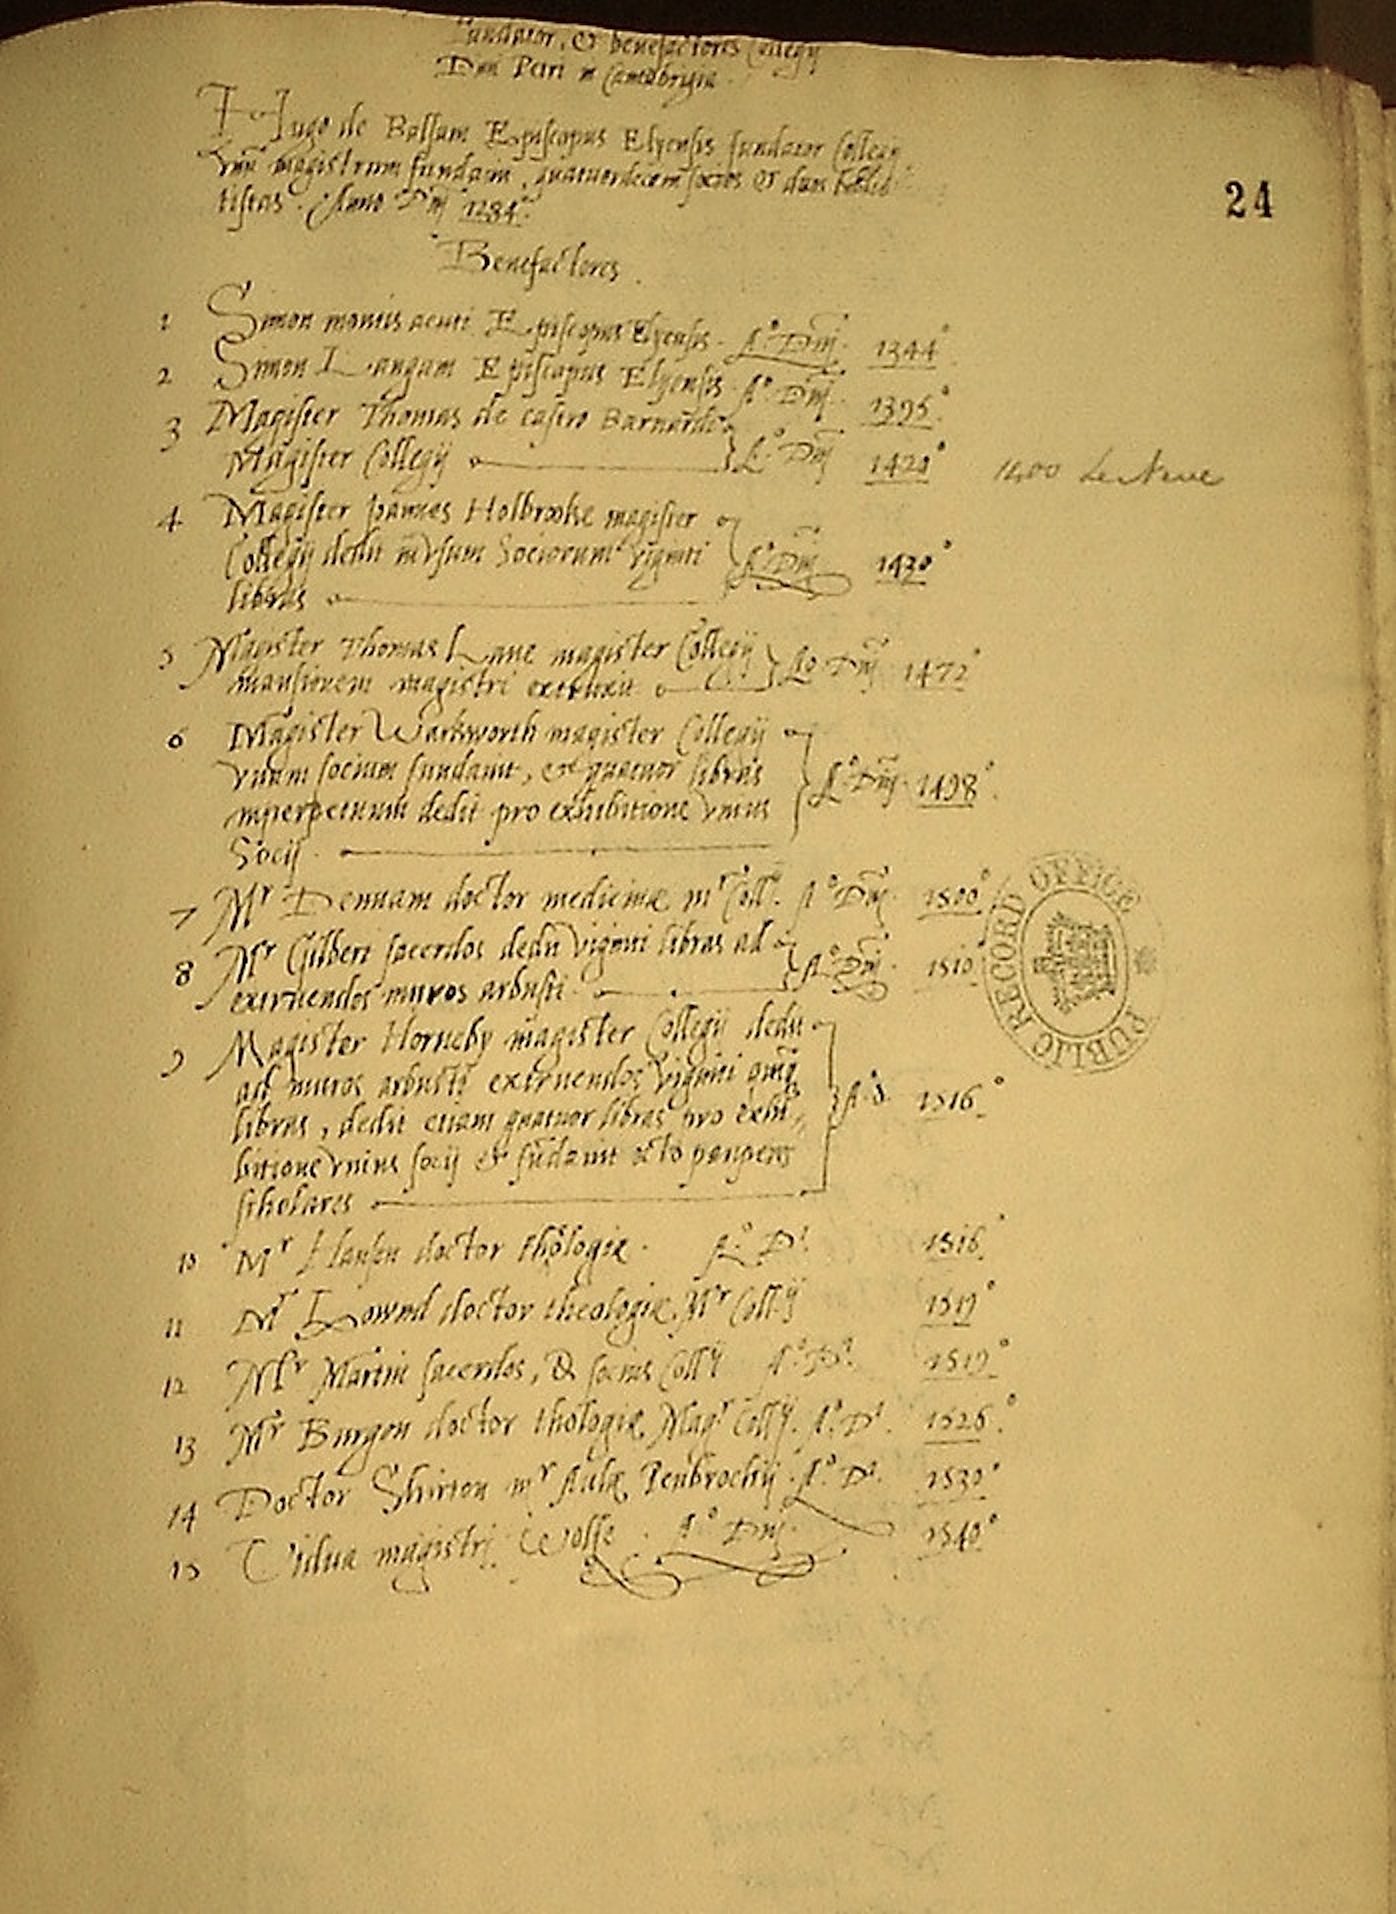 Fundator, & benefactores Collegij
Dīni Petri in Cantabrigia.
Hugo de Balsam Episcopus Elyensis fundator Collegij
vnū magistrum fundavit, quatuordecem socios & duos
tistas. Anno Dn̄j 1284º.
24
Benefactores.
1 Simon montis acuti Episcopus Elyensis. Aº. Dn̄j. 1344º
2 Simon Langam Episcopus Elyensis. Aº Dn̄j. 1395º
3 Magister Thomas de castro Barnardi
Magister Collegij Aº. Dn̄j 1420º 1400 Le Neve
4 Magister Joannes Holbrooke magister
Collegij dedit in vsum Sociorum viginti Aº. Dn̄j 1430º
libras
5 Magister Thomas Lane magister Collegij
mansionem magistri extruxit Ao. Dn̄j 1472º
6 Magister Warkworth magister Collegij
vnum socium fundavit, et quatuor libras
inperpetuum dedit pro exhibitione vnius Aº. Dn̄j. 1498º.
Socij.
7 Mr Denmam doctor medicinæ mr Coll. Aº Dn̄j. 1500º
8 Mr Gilbert sacerdos dedit viginti libras ad
extruendos muros arbusti. Aº. Dn̄j. 1510
9 Magister Horneby magister Collegij dedit
ad muros arbusti extruendos viginti quinq
libras, dedit etiam quatuor libras pro exhi Aº. d. 1516º
bitione vnius socij & fūdavit octo pauperes
scholares
10 Mr doctor thologiæ. Aº. Dⁱ. 1516º
11 Mr Lownd doctor theologiæ, Mr Collij 1519º
12 Mr Martin sacerdos, & socius Collij Aº. Dⁱ. 1519º
13 Mr Burgon doctor thologiæ, Magr Collij. Aº. Dⁱ. 1526º.
14 Doctor Shirton mr Aulæ Penbrochij. Aº. Dⁱ. 1530º
15 Vidua magistrj Wolfe. Aº Dn̄j. 1540º
PUBLIC RECORD OFFICE